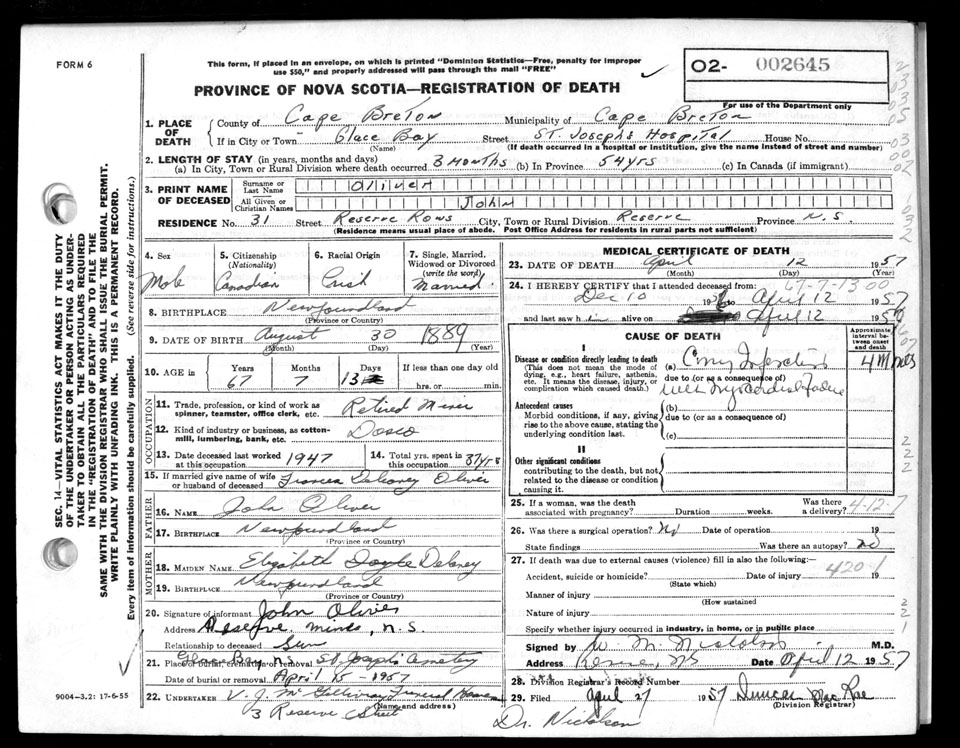 FORM 6
This form, if placed in an envelope, on which is printed "Dominion Statistics—Free, penalty for improper
use $50," and properly addressed will pass through the mail "FREE"
PROVINCE OF NOVA SCOTIA—REGISTRATION OF DEATH
02- 002645
For use of the Department only
1. PLACE OF DEATH County of Cape Breton Municipality of Cape Breton
If in City or Town Glace Bay Street St. Josephs Hospital House No.
(Name) (If death occurred in a hospital or institution, give the name instead of street and number)
2. LENGTH OF STAY (in years, months and days)
(a) In City, Town or Rural Division where death occurred 3 months (b) In Province 54 yrs (c) In Canada (if immigrant)
3. PRINT NAME OF DECEASED Surname or Last Name Olliver
All Given or Christian Names John
RESIDENCE No. 31 Street Reserve Rows City, Town or Rural Division Reserve Province N.S.
(Residence means usual place of abode. Post Office Address for residents in rural parts not sufficient)
4. Sex Male
5. Citizenship (Nationality) Canadian
6. Racial Origin Irish
7. Single, Married, Widowed or Divorced (write the word) Married
8. BIRTHPLACE Newfoundland
(Province or Country)
9. DATE OF BIRTH August 30 1889
(Month) (Day) (Year)
10. AGE in Years 67 Months 7 Days 13 If less than one day old
hrs. or min.
OCCUPATION
11. Trade, profession, or kind of work as spinner, teamster, office clerk, etc. Retired Miner
12. Kind of industry or business, as cotton-mill, lumbering, bank, etc. Dosco
13. Date deceased last worked at this occupation 1947
14. Total yrs. spent in this occupation 37 yrs
15. If married give name of wife or husband of deceased Frances Delaney Oliver
FATHER
16. NAME John Oliver
17. BIRTHPLACE Newfoundland
(Province or Country)
MOTHER
18. MAIDEN NAME Elizabeth Doyle Delaney
19. BIRTHPLACE Newfoundland
(Province or Country)
20. Signature of informant John Oliver
Address Reserve Mines, N.S.
Relationship to deceased Son
21. Place of burial, cremation or removal Glace Bay N.S. St. Joseph's Cemetery
Date of burial or removal April 15 - 1957
22. UNDERTAKER V. J. McGillivray Funeral Home
(Name and address)
3 Reserve Street
MEDICAL CERTIFICATE OF DEATH
23. DATE OF DEATH April 12 1957
(Month) (Day) (Year)
67-7-13 00
24. I HEREBY CERTIFY that I attended deceased from:
Dec 10 19 to April 12 1957
and last saw him alive on April 12 1957
CAUSE OF DEATH
Approximate interval between onset and death
I
Disease or condition directly leading to death
(This does not mean the mode of dying, e.g., heart failure, asthenia, etc. It means the disease, injury, or complication which caused death.)
(a) 4 Mnes
due to (or as a consequence of)
with Myocardial Failure
Antecedent causes
Morbid conditions, if any, giving rise to the above cause, stating the underlying condition last.
(b)
due to (or as a consequence of)
(c)
II
Other significant conditions
contributing to the death, but not related to the disease or condition causing it.
25. If a woman, was the death associated with pregnancy? Duration weeks. Was there a delivery?
4-12-7
26. Was there a surgical operation? No Date of operation 19
State findings Was there an autopsy? No
27. If death was due to external causes (violence) fill in also the following:—
420-1
Accident, suicide or homicide? Date of injury 19
(State which)
Manner of injury
(How sustained
Nature of injury
Specify whether injury occurred in industry, in home, or in public place
Signed by W. M. Nicholson M.D.
Address Reserve, NS Date April 12 1957
28. Division Registrar's Record Number
29. Filed April 27 1957 Duncan MacRae
(Division Registrar)
Dr. Nicholson
SEC. 14—VITAL STATISTICS ACT MAKES IT THE DUTY
OF THE UNDERTAKER OR PERSON ACTING AS UNDER-
TAKER TO OBTAIN ALL THE PARTICULARS REQUIRED
IN THE "REGISTRATION OF DEATH" AND TO FILE THE
SAME WITH THE DIVISION REGISTRAR WHO SHALL ISSUE THE BURIAL PERMIT.
WRITE PLAINLY WITH UNFADING INK. THIS IS A PERMANENT RECORD.
Every item of information should be carefully supplied. (See reverse side for instructions.)
9004-3.2: 17-6-55